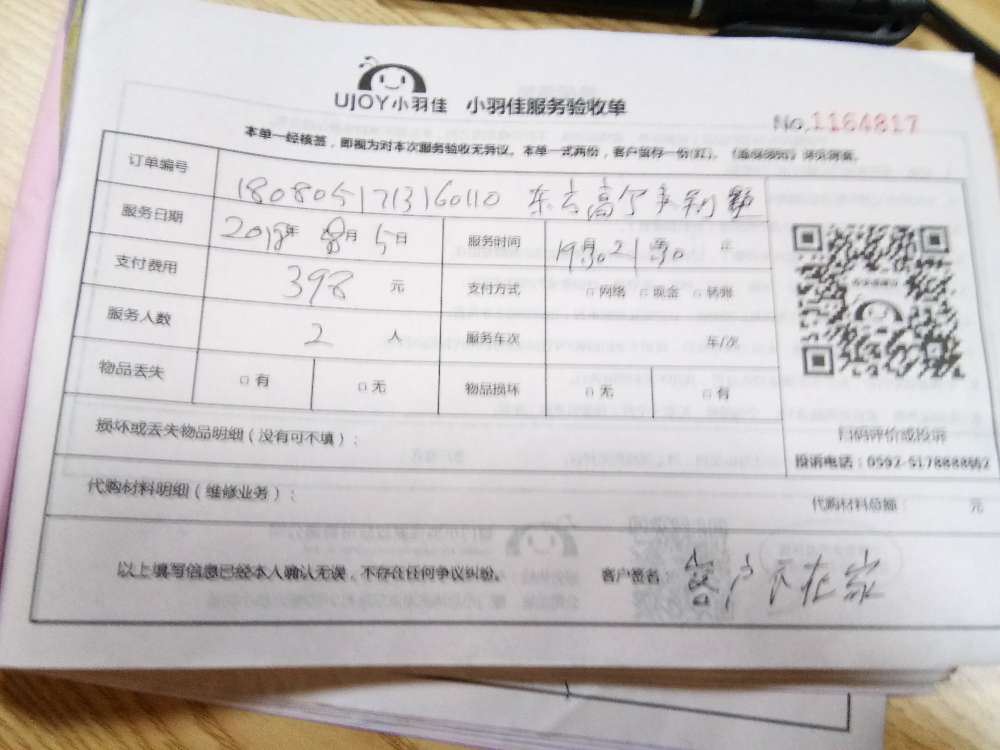 UJOY小羽佳 小羽佳服务验收单
No.1164817
本单一经核签，即视为对本次服务验收无异议。本单一式两份，客户留存一份
订单编号 1808051713160110 东方高尔夫别墅
服务日期 2018年 8月 5日 服务时间 19 30 21 30
支付费用 398 元 支付方式 □网络 □现金 □转账
服务人数 2 人 服务车次 车/次
物品丢失 □有 □无 物品损坏 □无 □有
扫码评价或投诉
损坏或丢失物品明细（没有可不填）：
投诉电话：0592-5178888
代购材料明细（维修业务）： 代购材料总额： 元
以上填写信息已经本人确认无误，不存在任何争议纠纷。 客户签名： 客户不在家